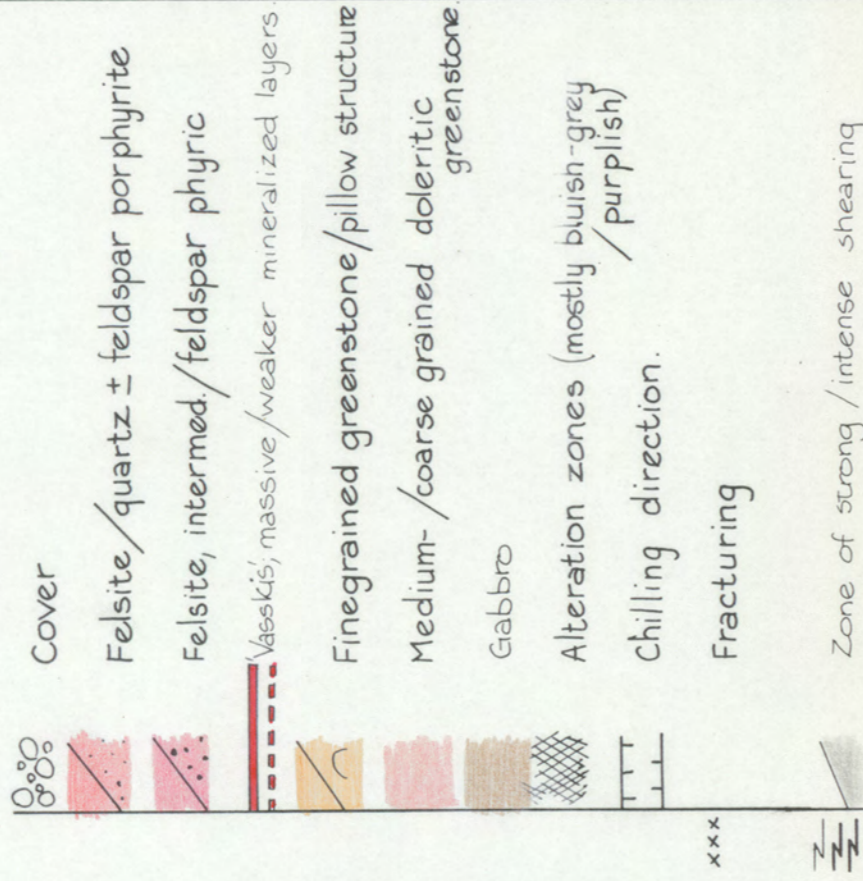 Cover
Felsite/quartz ± feldspar porphyrite
Felsite, intermed./feldspar phyric
'Vasskis', massive/weaker mineralized layers.
Finegrained greenstone/pillow structure
Medium-/coarse grained doleritic
greenstone.
Gabbro
Alteration zones (mostly bluish-grey
/purplish)
Chilling direction.
xxx Fracturing
Zone of strong/intense shearing